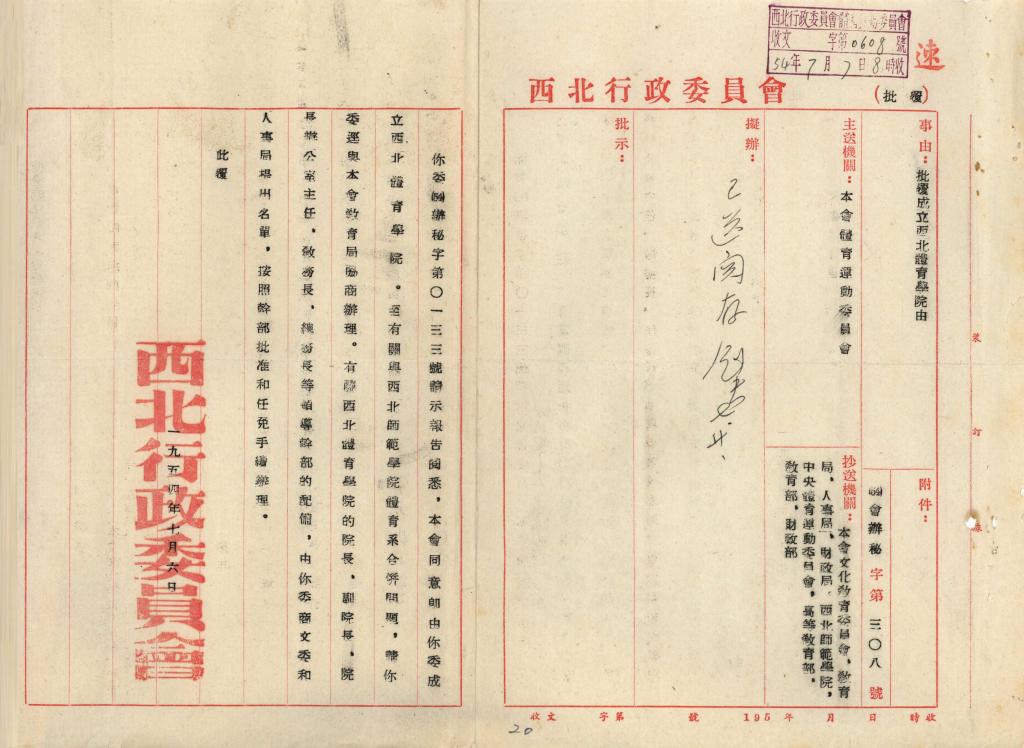 西北行政委員會體育運動委員會
收文 字第0608號
54年7月7日8時收
速
西北行政委員會
(批覆)
事由：批覆成立西北體育學院由
附件：
主送機關：本會體育運動委員會
會辦秘字第三〇八號
抄送機關：本會文化教育委員會、教育
局、人事局、財政局、西北師範學院，
中央體育運動委員會，高等教育部，
教育部，財政部
擬辦：
已送閱存
批示：
裝
訂
線
收文 字第 號 195 年 月 日 時收
你委辦秘字第〇一三三號請示報告閱悉，本會同意即由你委成
立西北體育學院。至有關與西北師範學院體育系合併問題，請你
委逕與本會教育局協商辦理。有關西北體育學院的院長、副院長、院
長辦公室主任、教務長、總務長等領導幹部的配備，由你委商文委和
人事局提出名單，按照幹部批准和任免手續辦理。
此覆
西北行政委員會
一九五四年七月六日
20